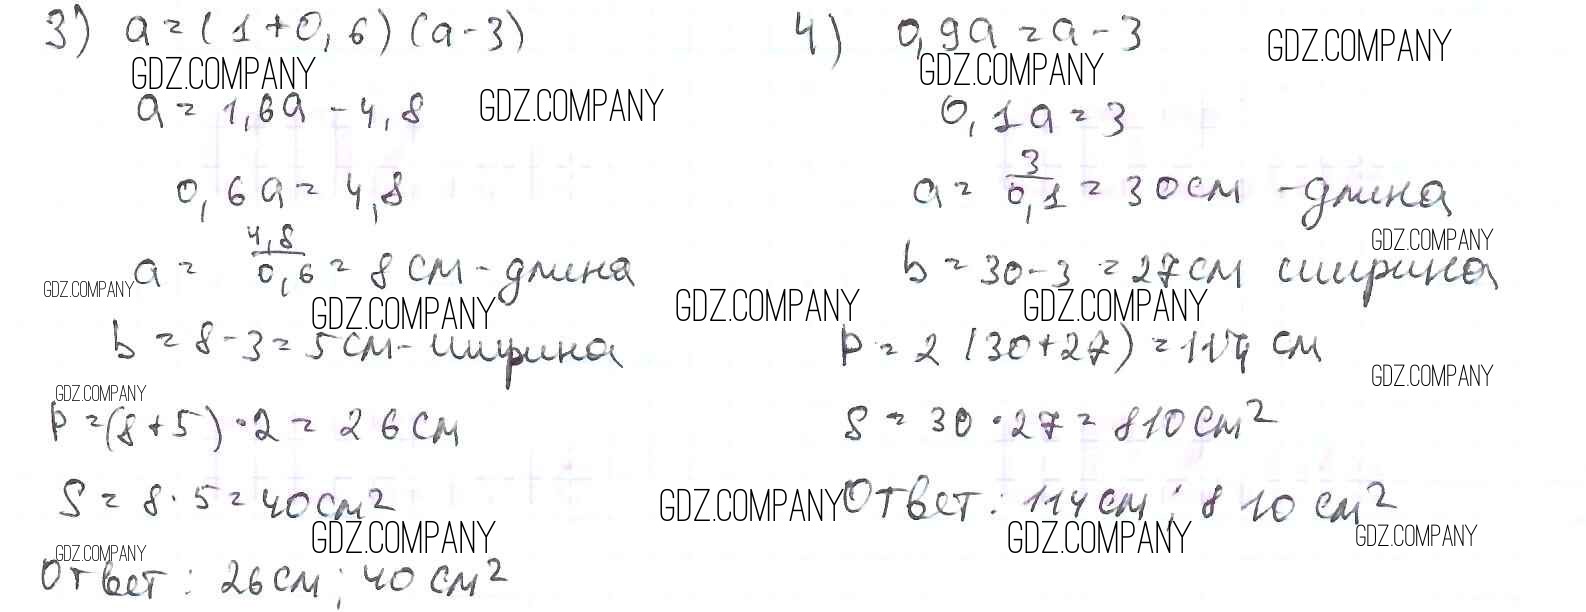 3) a = (1+0,6)(a-3)
GDZ.COMPANY
a = 1,6a - 4,8
GDZ.COMPANY
0,6a = 4,8
a = 4,8/0,6 = 8 см - длина
GDZ.COMPANY
GDZ.COMPANY
b = 8-3 = 5 см - ширина
GDZ.COMPANY
P = (8+5)·2 = 26 см
S = 8·5 = 40 см²
GDZ.COMPANY
GDZ.COMPANY
Ответ: 26 см; 40 см²
4) 0,9a = a-3
GDZ.COMPANY
GDZ.COMPANY
0,1a = 3
a = 3/0,1 = 30 см - длина
GDZ.COMPANY
b = 30-3 = 27 см ширина
GDZ.COMPANY
GDZ.COMPANY
P = 2(30+27) = 114 см
GDZ.COMPANY
S = 30·27 = 810 см²
GDZ.COMPANY
Ответ: 114 см; 810 см²
GDZ.COMPANY
GDZ.COMPANY